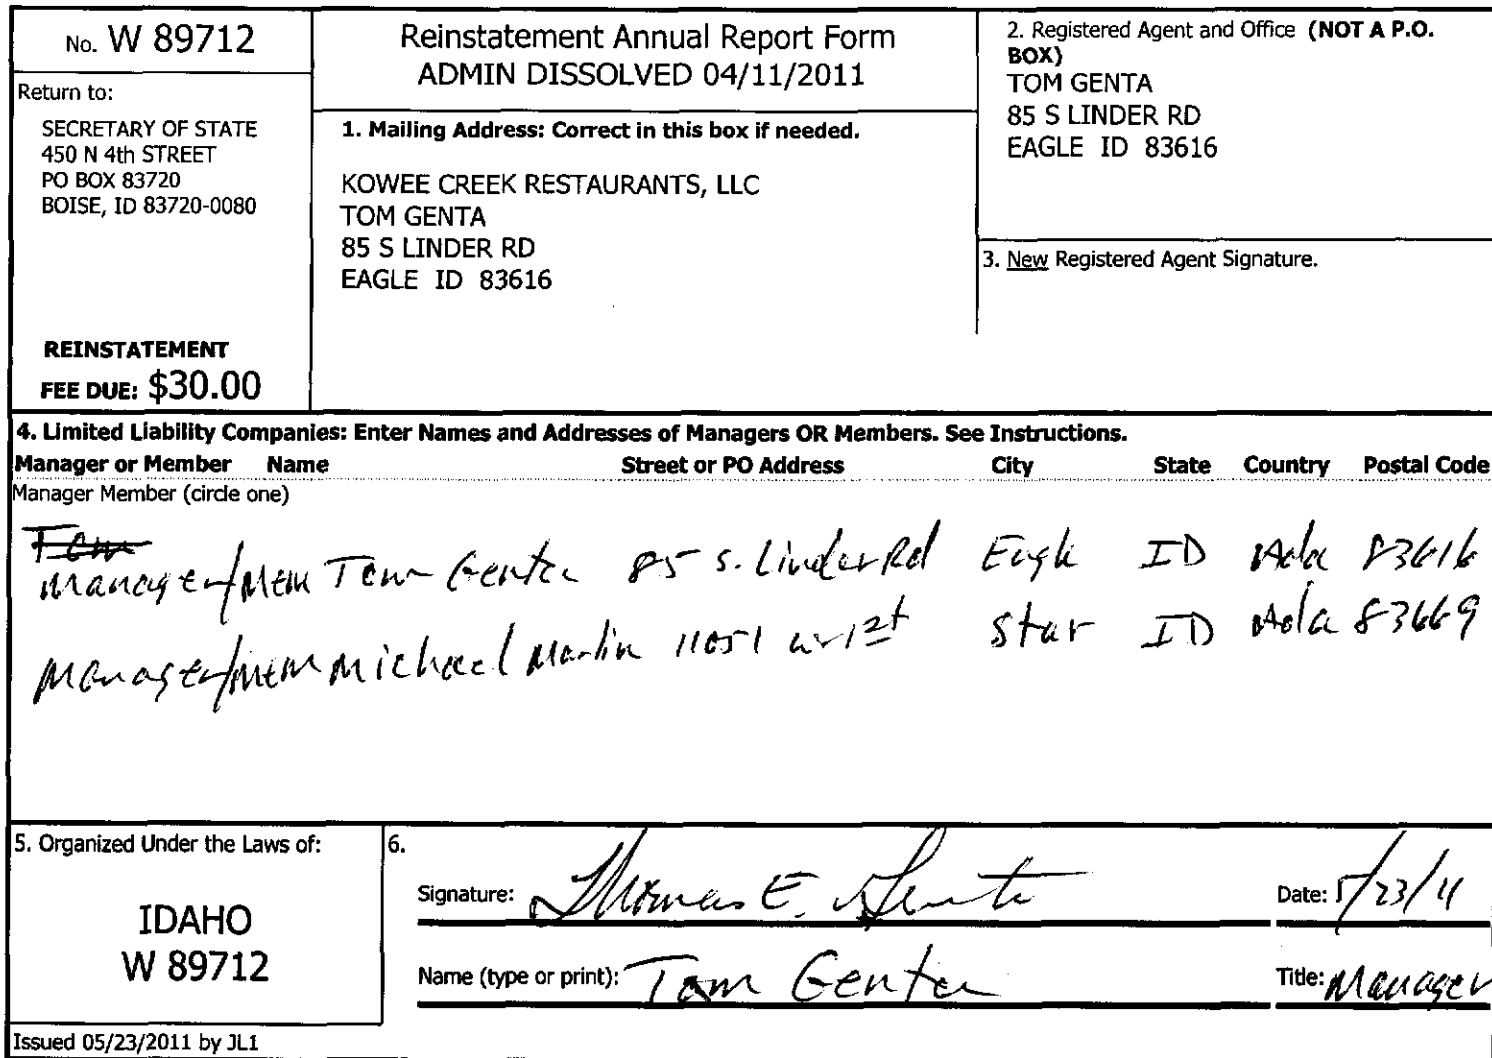 No. W 89712
Return to:
SECRETARY OF STATE
450 N 4th STREET
PO BOX 83720
BOISE, ID 83720-0080
REINSTATEMENT
FEE DUE: $30.00
Reinstatement Annual Report Form
ADMIN DISSOLVED 04/11/2011
1. Mailing Address: Correct in this box if needed.
KOWEE CREEK RESTAURANTS, LLC
TOM GENTA
85 S LINDER RD
EAGLE ID 83616
2. Registered Agent and Office (NOT A P.O.
BOX)
TOM GENTA
85 S LINDER RD
EAGLE ID 83616
3. New Registered Agent Signature.
4. Limited Liability Companies: Enter Names and Addresses of Managers OR Members. See Instructions.
Manager or Member Name Street or PO Address City State Country Postal Code
Manager Member (circle one)
Tom
Manager/Mem Tom Genta 85 S. Linder Rd Eagle ID Ada 83616
Manager/Mem Michael Martin 11051 W 1st Star ID Ada 83669
5. Organized Under the Laws of:
IDAHO
W 89712
6.
Signature: Thomas E. Genta Date: 5/23/11
Name (type or print): Tom Genta Title: Manager
Issued 05/23/2011 by JL1